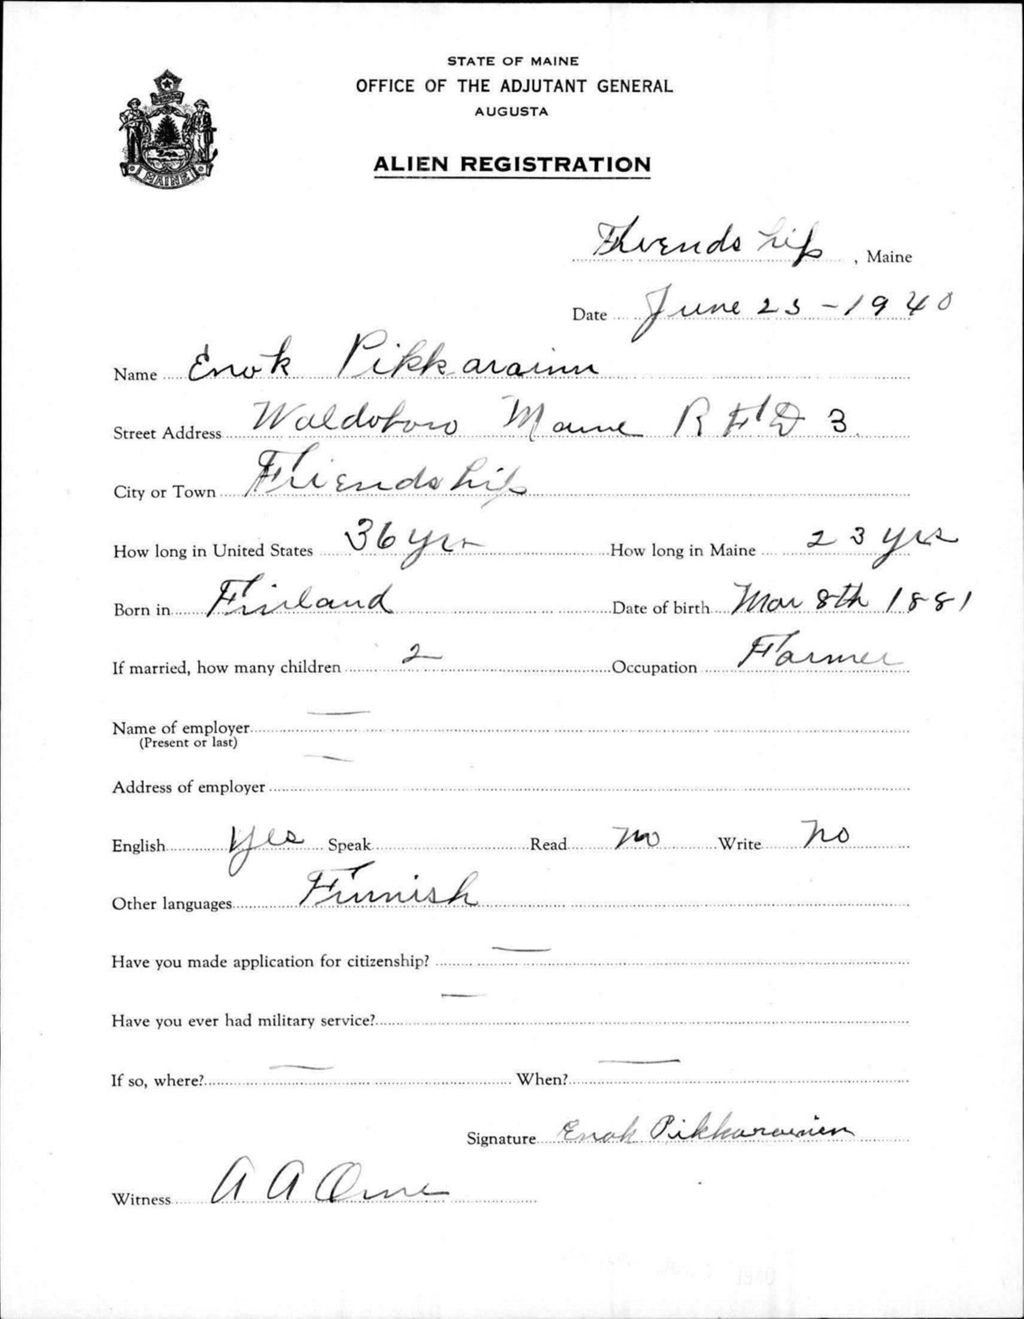 STATE OF MAINE
OFFICE OF THE ADJUTANT GENERAL
AUGUSTA
MAINE
ALIEN REGISTRATION
Friendship, Maine
Date June 25-1940
Name Enok Pikkarainn
Street Address Waldoboro Maine R F D 3.
City or Town Friendship
How long in United States 36 yrs How long in Maine 23 yrs
Born in Finland Date of birth Mar 8th 1881
If married, how many children 2 Occupation Farmer
Name of employer —
(Present or last)
Address of employer —
English Yes Speak Read no Write no
Other languages Finnish
Have you made application for citizenship? —
Have you ever had military service? —
If so, where? — When? —
Signature Enok Pikkarainen
Witness A A Orne